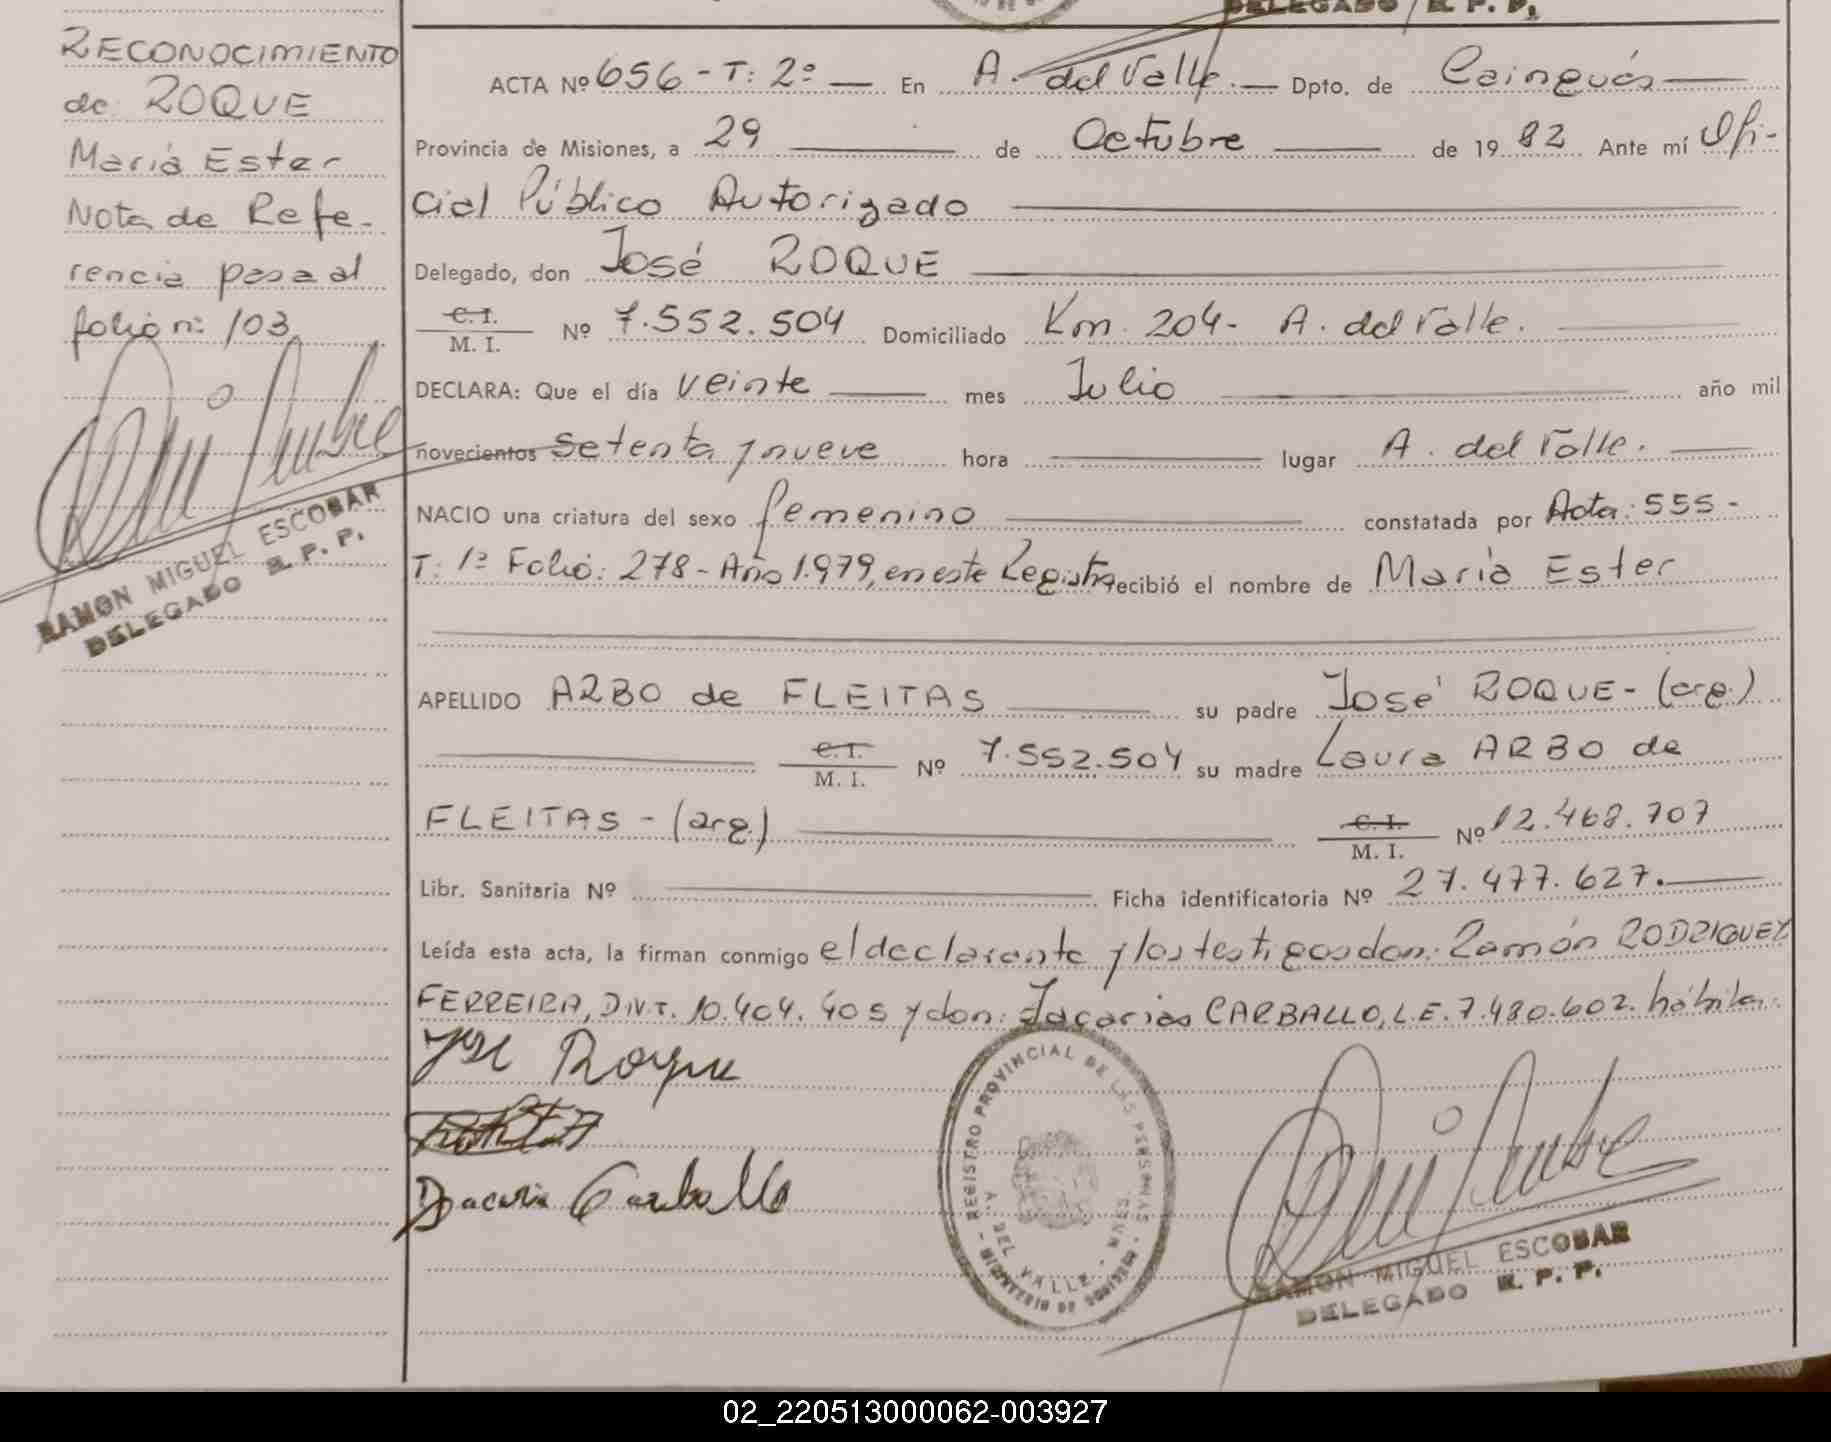 DELEGADO R. P. P.
RECONOCIMIENTO
de: ROQUE
María Ester
Nota de Refe-
rencia pasa al
folio nº 103
RAMON MIGUEL ESCOBAR
DELEGADO R. P. P.
ACTA Nº 656 - T: 2º — En A. del Valle.— Dpto. de Cainguás
Provincia de Misiones, a 29 de Octubre de 1982 Ante mí Ofi-
cial Público Autorizado
Delegado, don José ROQUE
C. I.
M. I. Nº 7.552.504 Domiciliado Km. 204- A. del Valle.
DECLARA: Que el día veinte mes Julio año mil
novecientos setenta y nueve hora lugar A. del Valle.
NACIO una criatura del sexo femenino constatada por Acta: 555 -
T: 1º Folio: 278 - Año 1.979, en este Registro recibió el nombre de María Ester
APELLIDO ARBO de FLEITAS su padre José ROQUE - (arg.)
C. I.
M. I. Nº 7.552.504 su madre Laura ARBO de
FLEITAS - (arg.) C. I.
M. I. Nº 12.468.707
Libr. Sanitaria Nº Ficha identificatoria Nº 27.477.627.
Leída esta acta, la firman conmigo el declarante y los testigos don: Ramón RODRIGUEZ
FERREIRA, D.N.I. 10.404.405 y don: Jacarias CARBALLO, L.E. 7.480.602. hábiles.
José Roque
Dacaria Carballo
REGISTRO PROVINCIAL DE LAS PERSONAS
A. DEL VALLE - MNES.
MINISTERIO DE GOBIERNO
RAMON MIGUEL ESCOBAR
DELEGADO R. P. P.
02_220513000062-003927